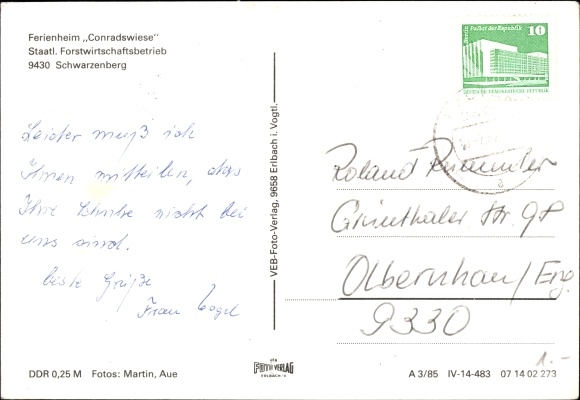 Ferienheim „Conradswiese"
Staatl. Forstwirtschaftsbetrieb
9430 Schwarzenberg
Leider muß ich
Ihnen mitteilen, dass
Ihre Schuhe nicht bei
uns sind.
beste Grüße
Frau Vogel
VEB-Foto-Verlag, 9658 Erlbach i. Vogtl.
Berlin, Palast der Republik
10
DEUTSCHE DEMOKRATISCHE REPUBLIK
a
Roland
Grünthaler Str. 98
Olbernhau/Erzg.
9330
1.-
DDR 0,25 M Fotos: Martin, Aue
VEB
FOTO VERLAG
ERLBACH/V.
A 3/85 IV-14-483 07 14 02 273